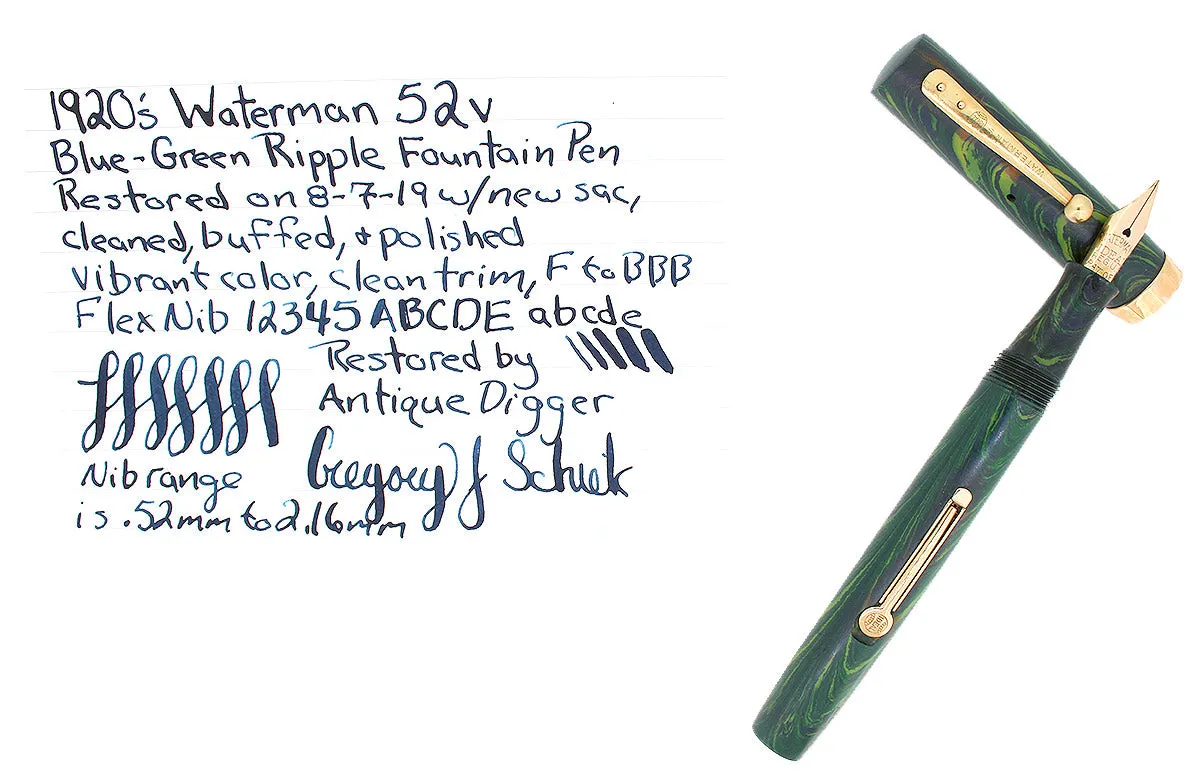 1920's Waterman 52v
Blue-Green Ripple Fountain Pen
Restored on 8-7-19 w/new sac,
cleaned, buffed, + polished
vibrant color, clean trim, F to BBB
Flex Nib 12345 ABCDE abcde
Restored by
Antique Digger
Gregory J
Nib range
is .52mm to 2.16mm
WATERMAN'S
IDEAL